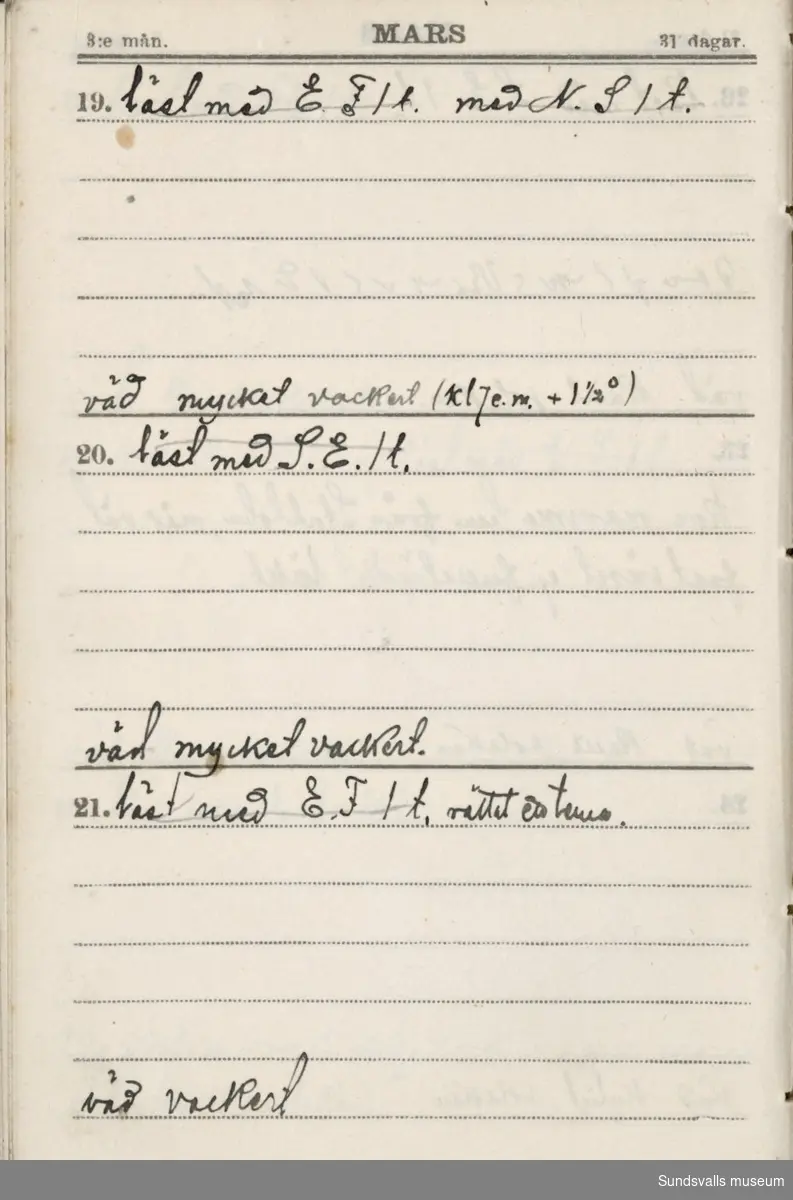 3:e mån. MARS 31 dagar.
19. läst med E. F 1 t. med N. S 1 t.
väd mycket vackert (kl 7 e.m. + 1 1/2°)
20. läst med S. E. 1 t.
väd mycket vackert.
21. läst med E. F 1 t, rättat ett tema.
väd vackert
Sundsvalls museum